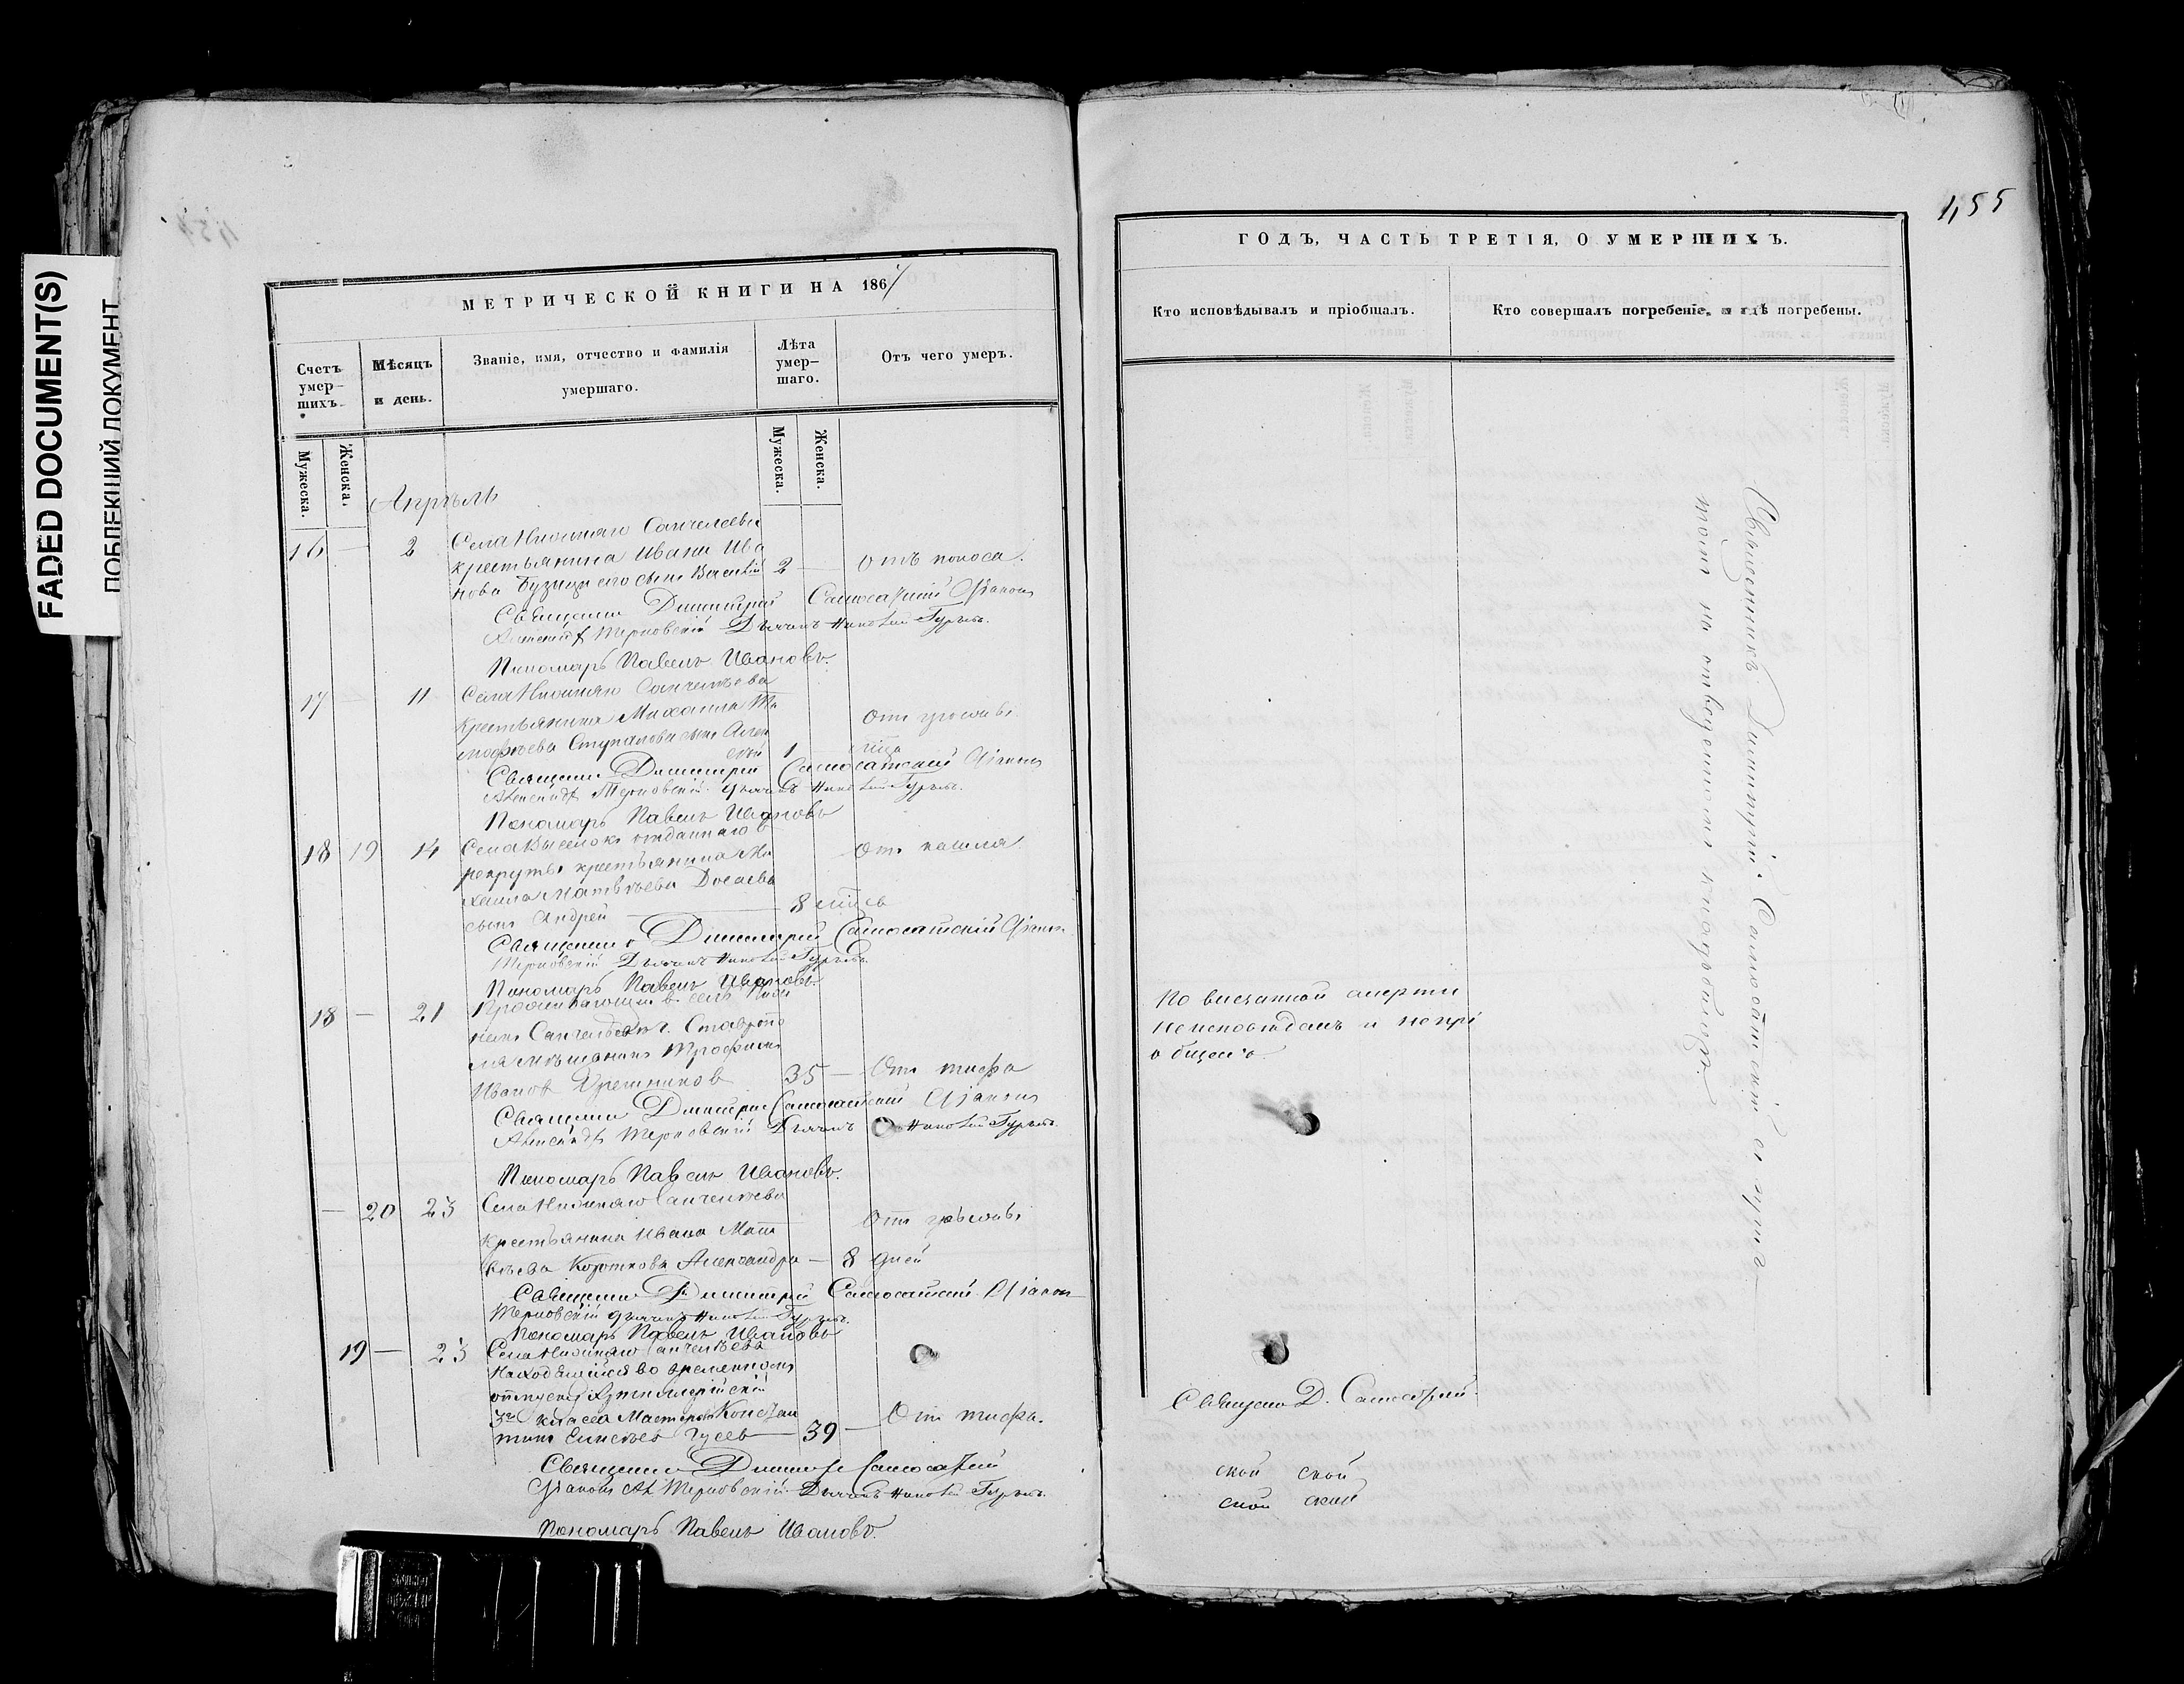 FADED DOCUMENT(S)
ПОБЛЕКШИЙ ДОКУМЕНТ
МЕТРИЧЕСКОЙ КНИГИ НА 1861
Счетъ умершихъ.
Мѣсяцъ и день.
Званіе, имя, отчество и фамилія умершаго.
Лѣта умершаго.
Отъ чего умеръ.
Мужеска.
Женска.
Мужеска.
Женска.
Апрѣль
16 — 2 Села Нижняго Санчелеева
крестьянина Ивана Ива
нова сынъ Василій 2 — отъ поноса.
Священник Димитрій Самосатскій Діаконъ
Александр Терновскій Дьячекъ Николай Гурьевъ.
Пономарь Павелъ Ивановъ.
17 — 11 Села Нижняго Санчелеева
Крестьянина Михаила Ти
мофѣева Ступалова сынъ Алек
сѣй 1 Отъ
Священник Димитрій Самосатскій Діаконъ
Александр Терновскій Дьячекъ Николай Гурьевъ.
Пономарь Павелъ Ивановъ
18 19 14 Села Выселокъ отданнаго в
рекруты крестьянина Ми
хаила Матвѣева
сынъ Андрей — 8 Отъ кашля
Священник Димитрій Самосатскій Діаконъ
Терновскій Дьячекъ Николай Гурьевъ.
Пономарь Павелъ Ивановъ.
18 — 21 Проживающий в селѣ Ниж
немъ Санчелеевѣ г. Ставропо
ля мѣщанинъ Трофимъ
Иванов 35 — Отъ тифа
Священник Димитрій Самосатскій Діаконъ
Александр Терновскій Дьячекъ Николай Гурьевъ.
Пономарь Павелъ Ивановъ.
— 20 23 Села Нижняго Санчелеева
Крестьянина Ивана Мат
вѣева Короткова Александра — 8 дней Отъ
Священник Димитрій Самосатскій Діаконъ
Терновскій Дьячекъ Николай Гурьевъ.
Пономарь Павелъ Ивановъ
19 — 23 Села Нижняго Санчелеева
Находящійся во временномъ
отпуску Артиллерійскій
3го класса Мастеровой Констан
тинъ Гусев — 39 — Отъ тифа.
Священник Самосатскій
Діаконъ Ал Терновскій Дьячекъ Николай Гурьевъ.
Пономарь Павелъ Ивановъ.
455
ГОДЪ, ЧАСТЬ ТРЕТІЯ, О УМЕРШИХЪ.
Кто исповѣдывалъ и пріобщалъ.
Кто совершалъ погребеніе, и гдѣ погребены.
По внезапной смерти
неисповѣданъ и непрі
общенъ.
Священникъ Димитрій Самосатскій съ причто
томъ на отведенномъ кладбищѣ.
Священ Д. Самосатскій.
ской ской
ской ской